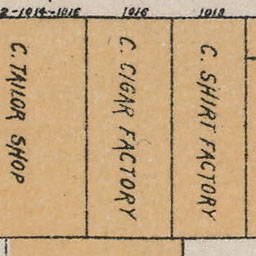 2-1014-1016 1016 1018
C. TAILOR SHOP
C. CIGAR FACTORY
C. SHIRT FACTORY